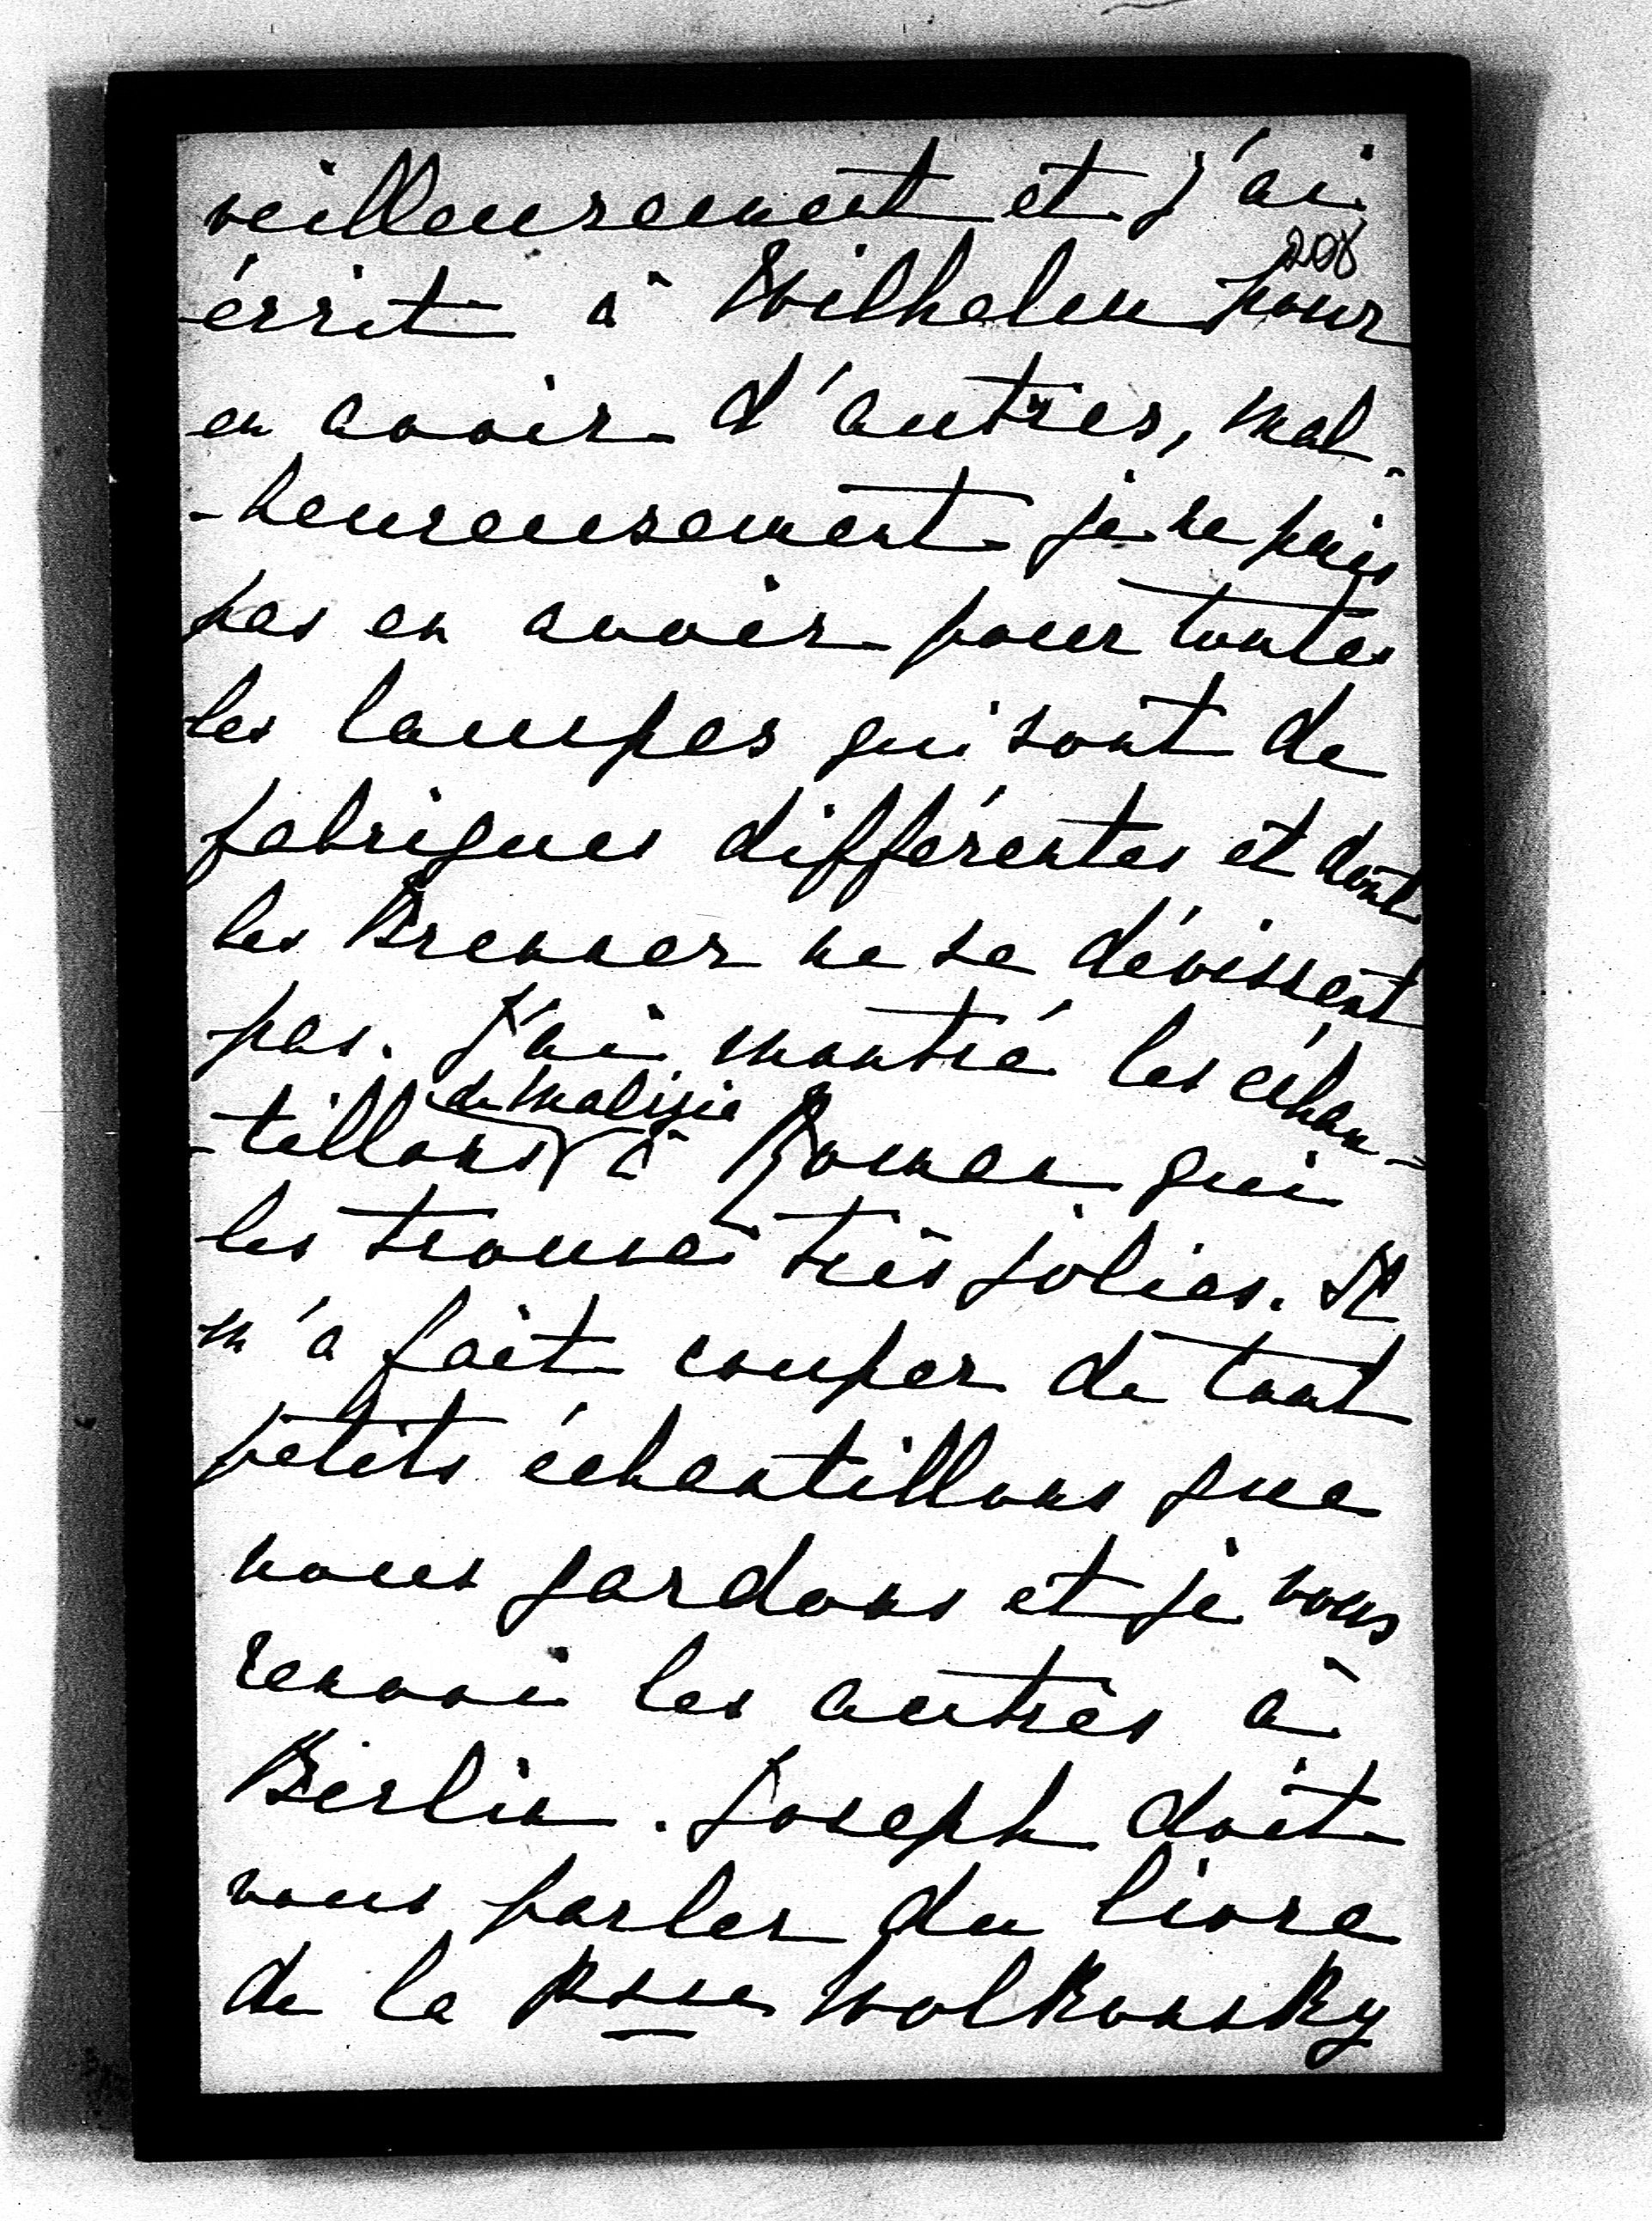 veilleusement et j'ai
208
écrit à Wilhelm pour
en avoir d'autres, mal-
-heureusement je ne puis
pas en avoir pour toutes
les lampes qui sont de
fabriques différentes et dont
les Brenner ne se dévissent
pas. J'ai montré les échan-
de Malizie
-tillons à Roman qui
les trouve très jolies. Il
m'a fait couper de tout
petits échantillons que
nous gardons et je vous
renvoi les autres à
Berlin. Joseph doit
vous parler du livre
de la Psse Wolkonsky